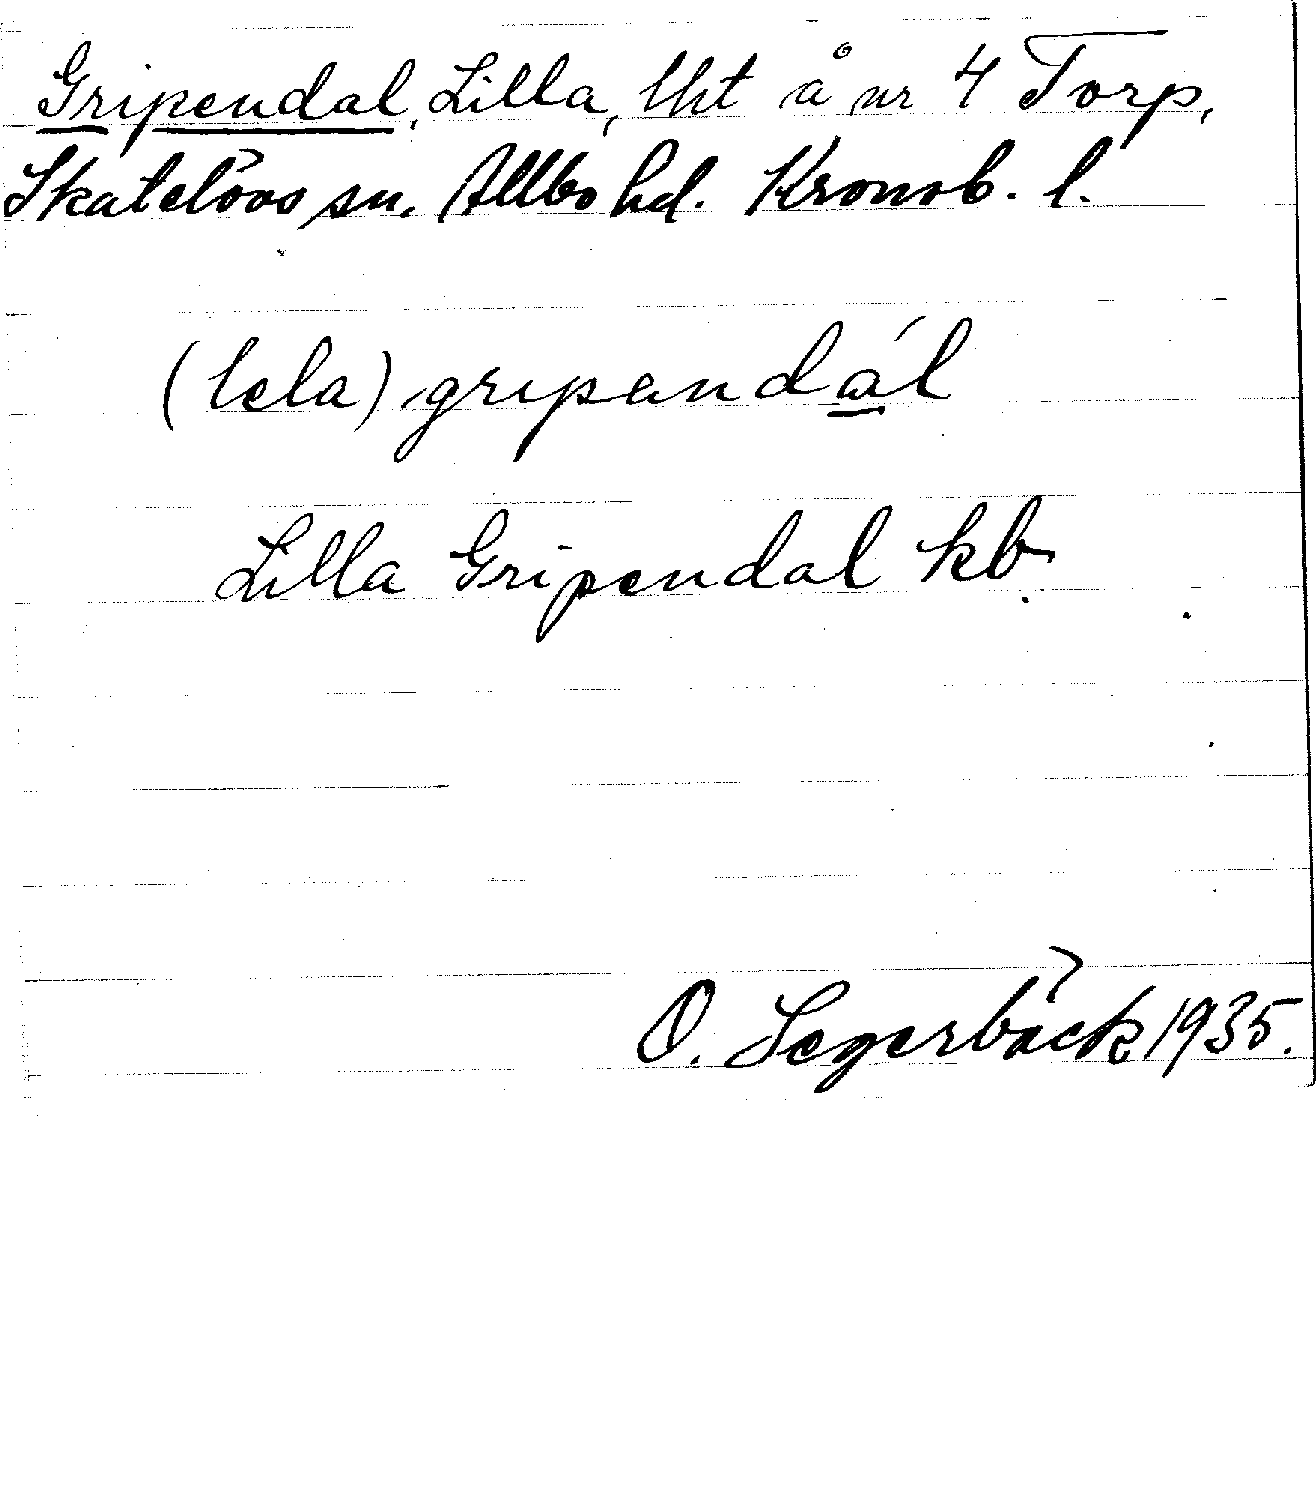 Gripendal, Lilla, lht å nr 4 Torp,
Skatelövs sn. Allbo hd. Kronob. l.
(lela) gripandál
Lilla Gripendal kb.
O. Segerbäck 1935.